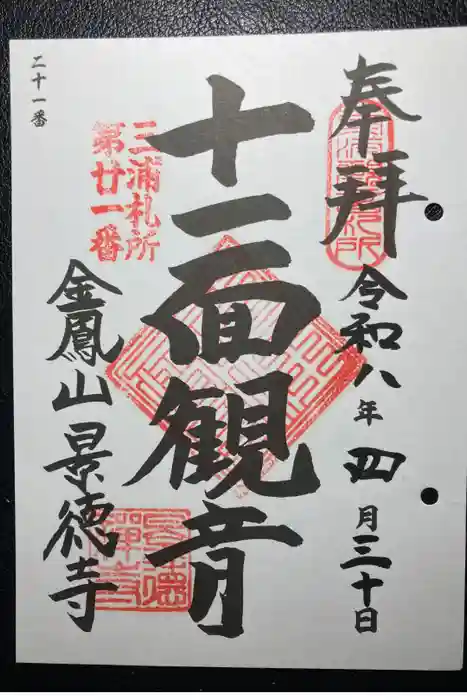 奉拝
令和八年四月三十日
三浦札所
第廿一番
十一面観音
金鳳山景德寺
二十一番